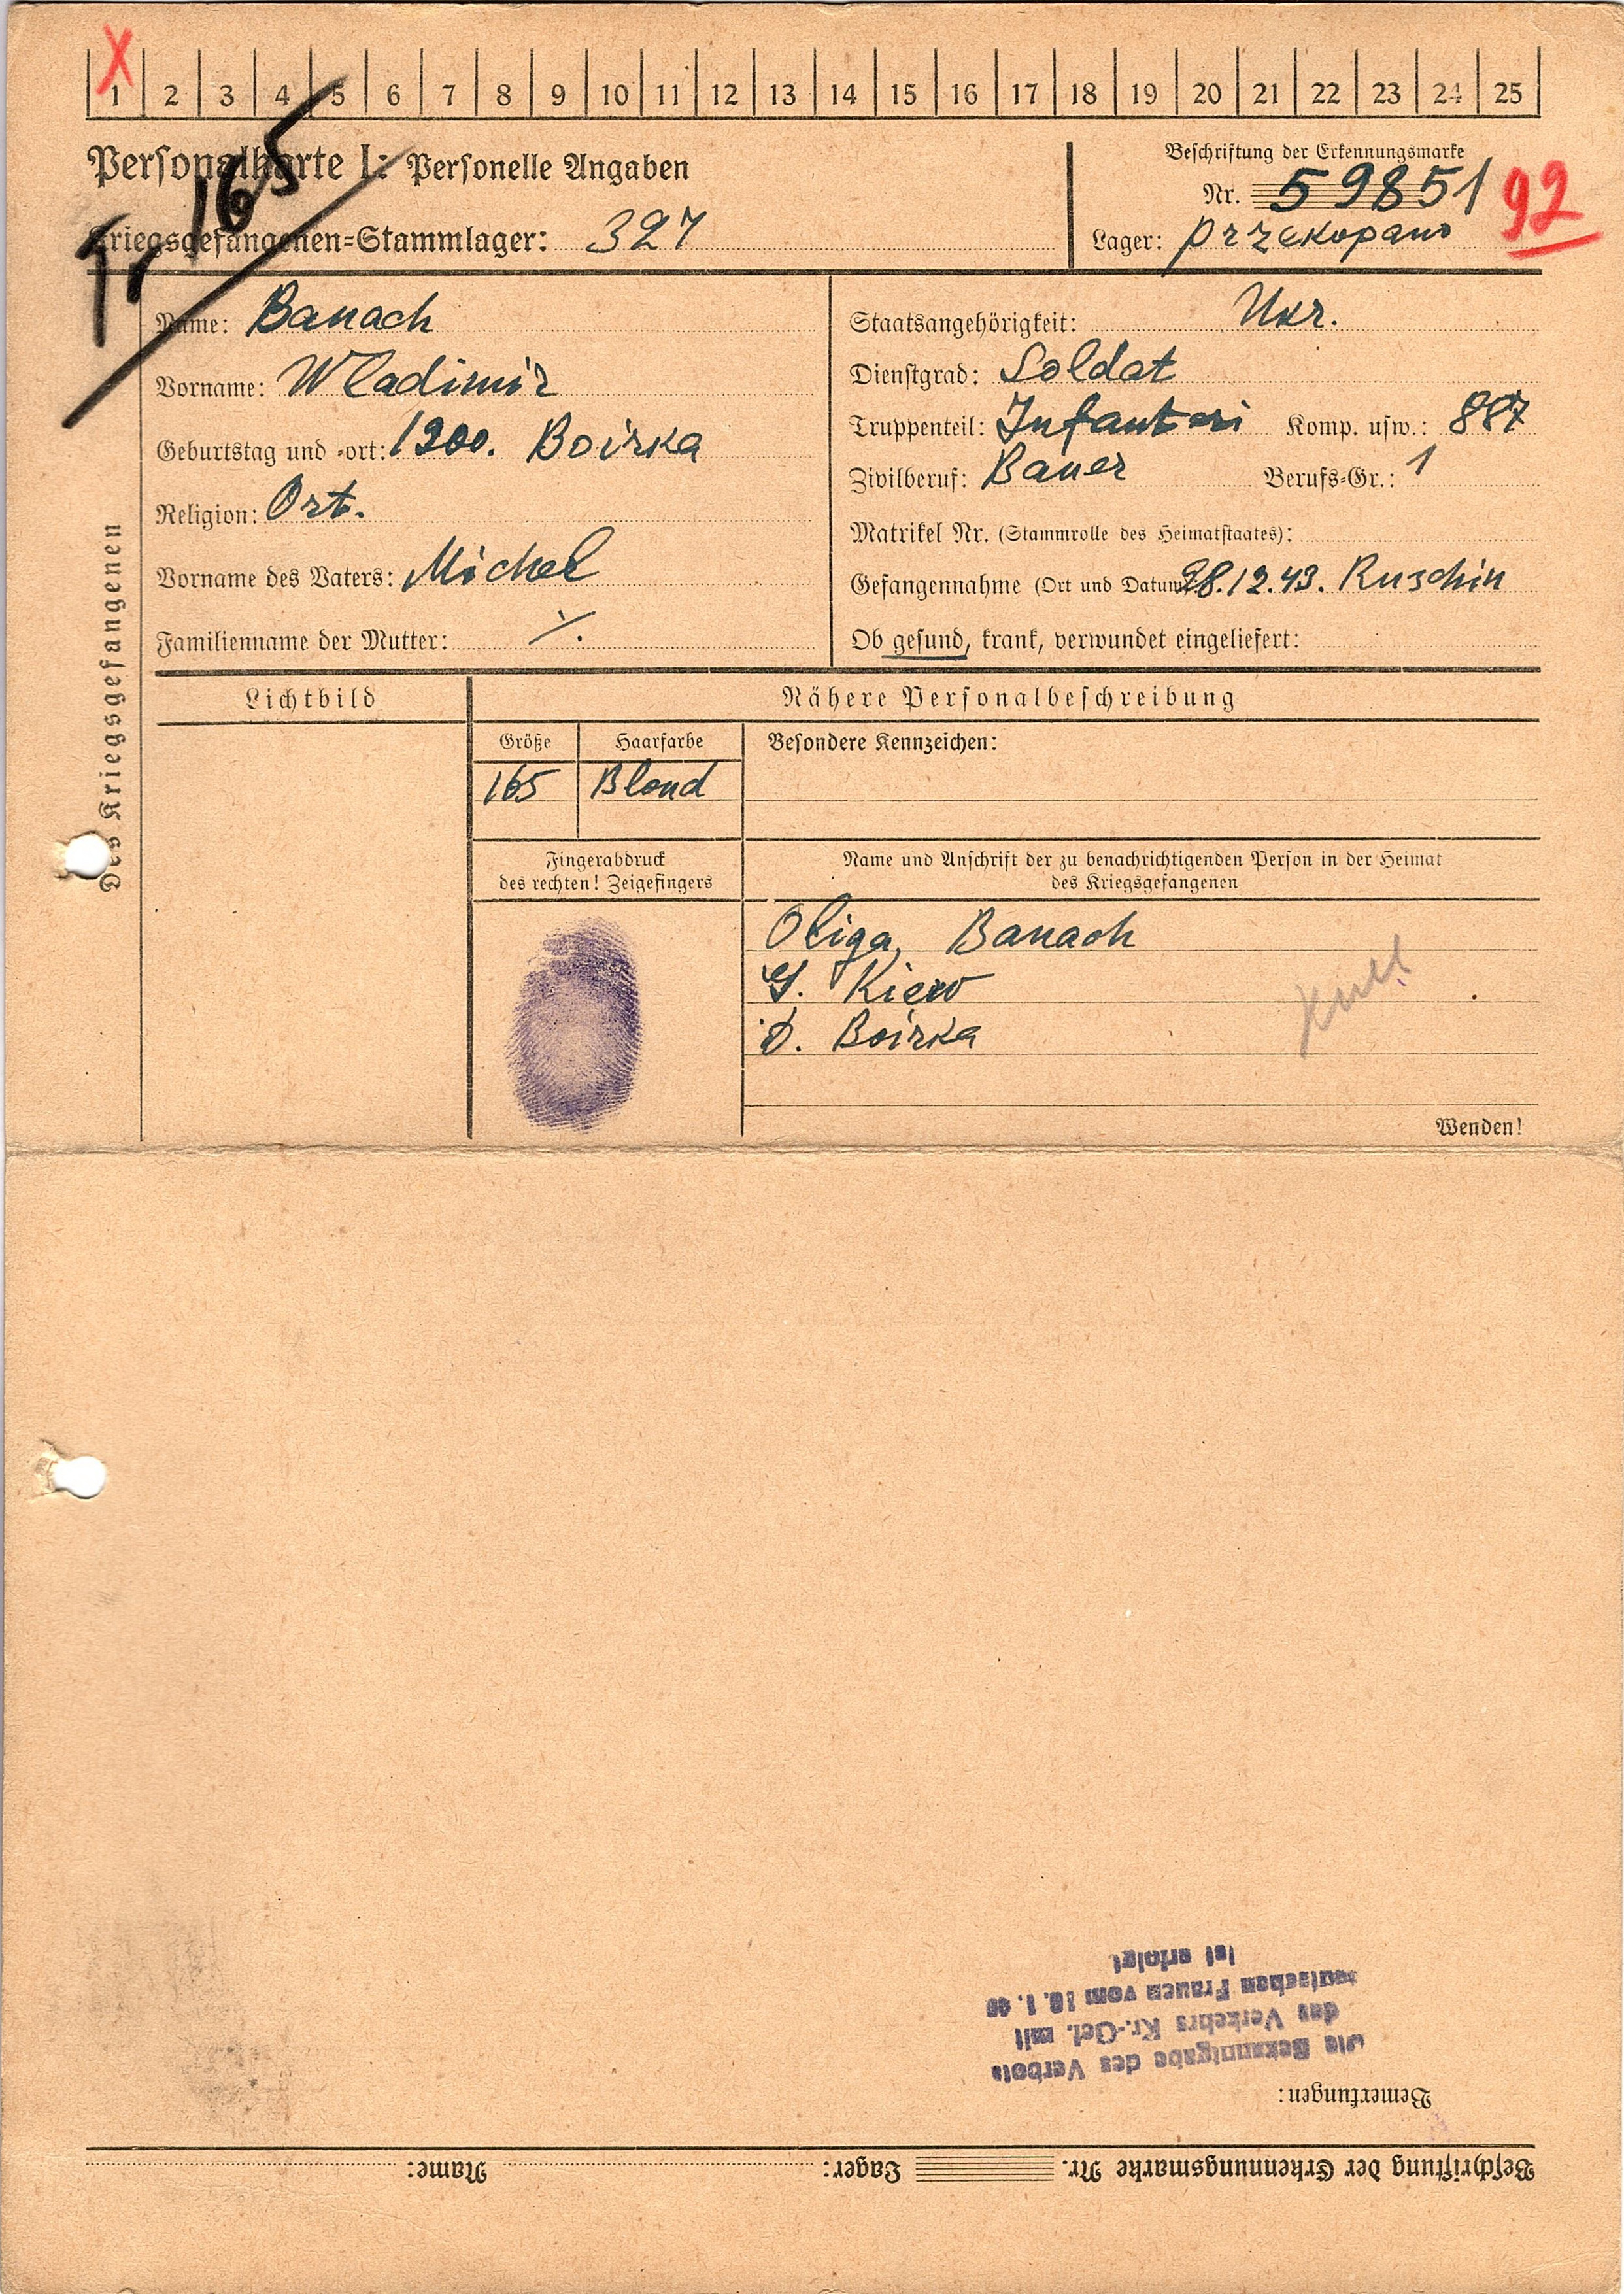 X
1 2 3 4 5 6 7 8 9 10 11 12 13 14 15 16 17 18 19 20 21 22 23 24 25
165
Personalkarte I: Personelle Angaben
Beschriftung der Erkennungsmarke
Nr. 59851 92
Kriegsgefangenen-Stammlager: 327
Lager: Przekopano
Des Kriegsgefangenen
Name: Banach
Vorname: Wladimir
Geburtstag und -ort: 1900. Boirka
Religion: Ort.
Vorname des Vaters: Michel
Familienname der Mutter: ·/.
Staatsangehörigkeit: Ukr.
Dienstgrad: Soldat
Truppenteil: Infanteri Komp. usw.: 887
Zivilberuf: Bauer Berufs-Gr.: 1
Matrikel Nr. (Stammrolle des Heimatstaates):
Gefangennahme (Ort und Datum): 28.12.43. Ruschin
Ob gesund, krank, verwundet eingeliefert:
Lichtbild
Nähere Personalbeschreibung
Größe Haarfarbe Besondere Kennzeichen:
165 Blond
Fingerabdruck
des rechten! Zeigefingers
Name und Anschrift der zu benachrichtigenden Person in der Heimat
des Kriegsgefangenen
Oliga Banach
G. Kiew
D. Boirka
Wenden!
Beschriftung der Erkennungsmarke Nr. Lager: Name:
Bemerkungen:
Die Bekanntgabe des Verbots
des Verkehrs Kr.-Gef. mit
deutschen Frauen vom 10. 1. 40
ist erfolgt